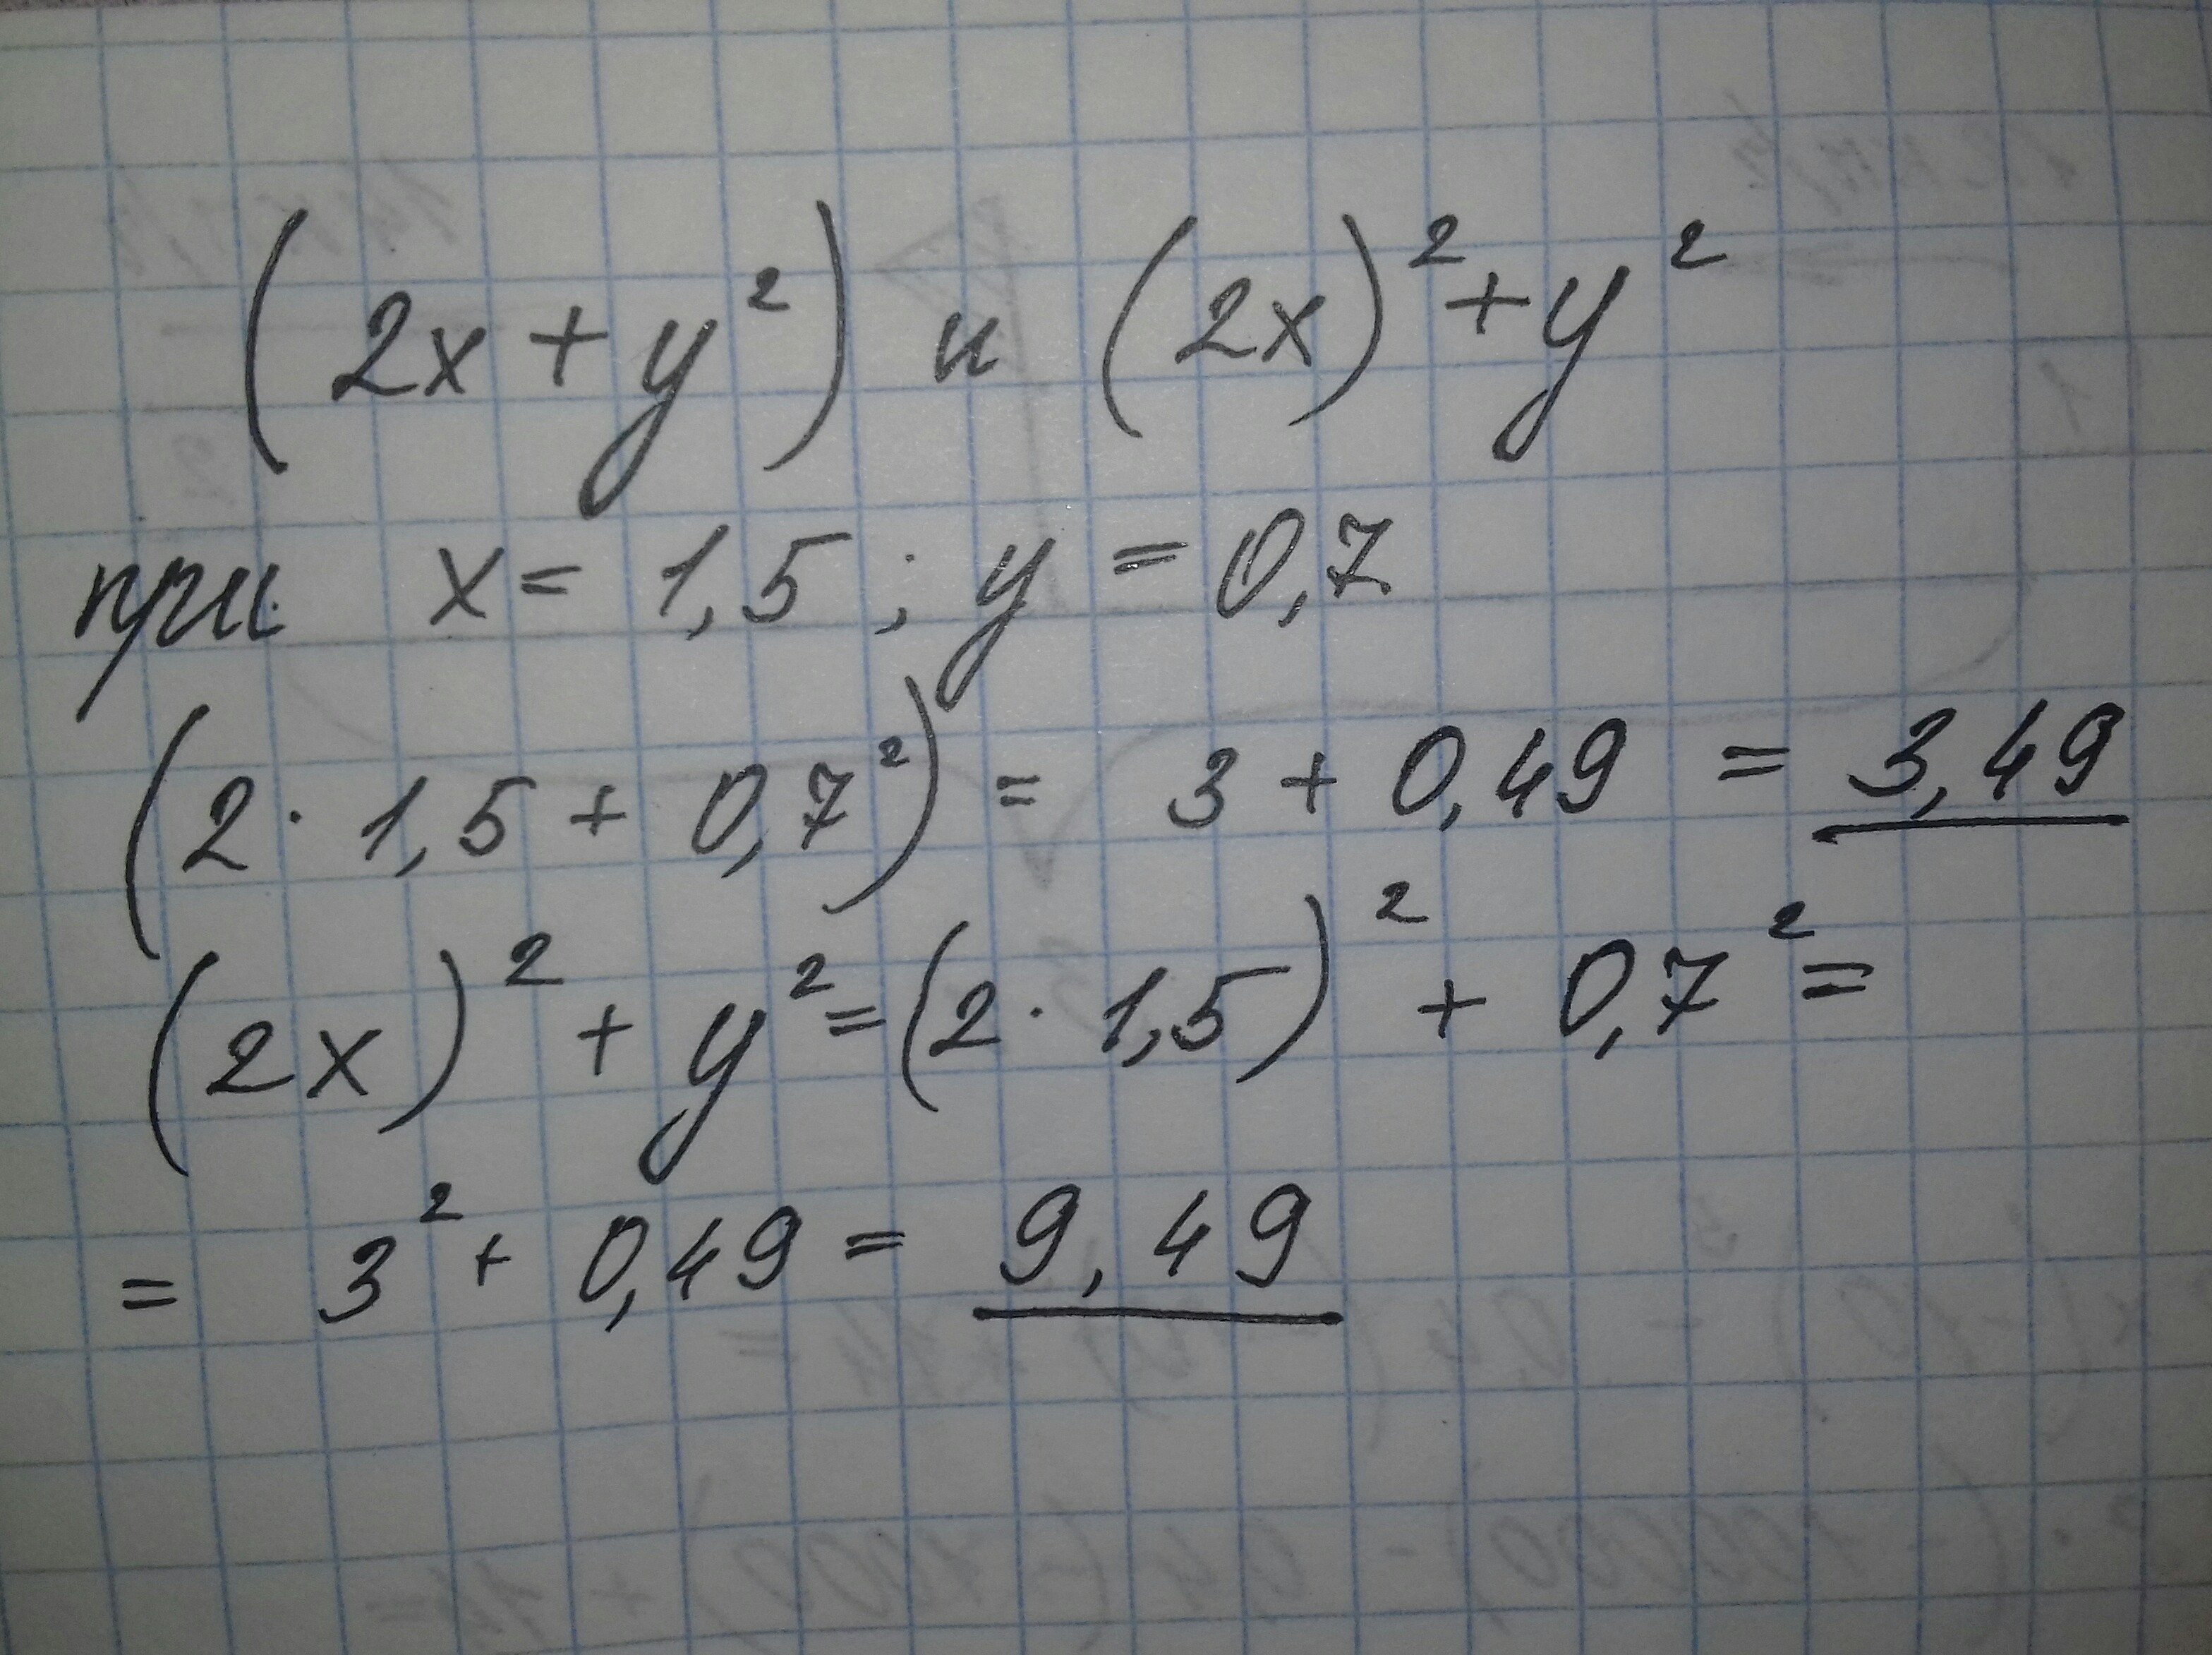 (2x + y²) и (2x)² + y²
при x = 1,5 ; y = 0,7
(2 · 1,5 + 0,7²) = 3 + 0,49 = 3,49
(2x)² + y² = (2 · 1,5)² + 0,7² =
= 3² + 0,49 = 9,49